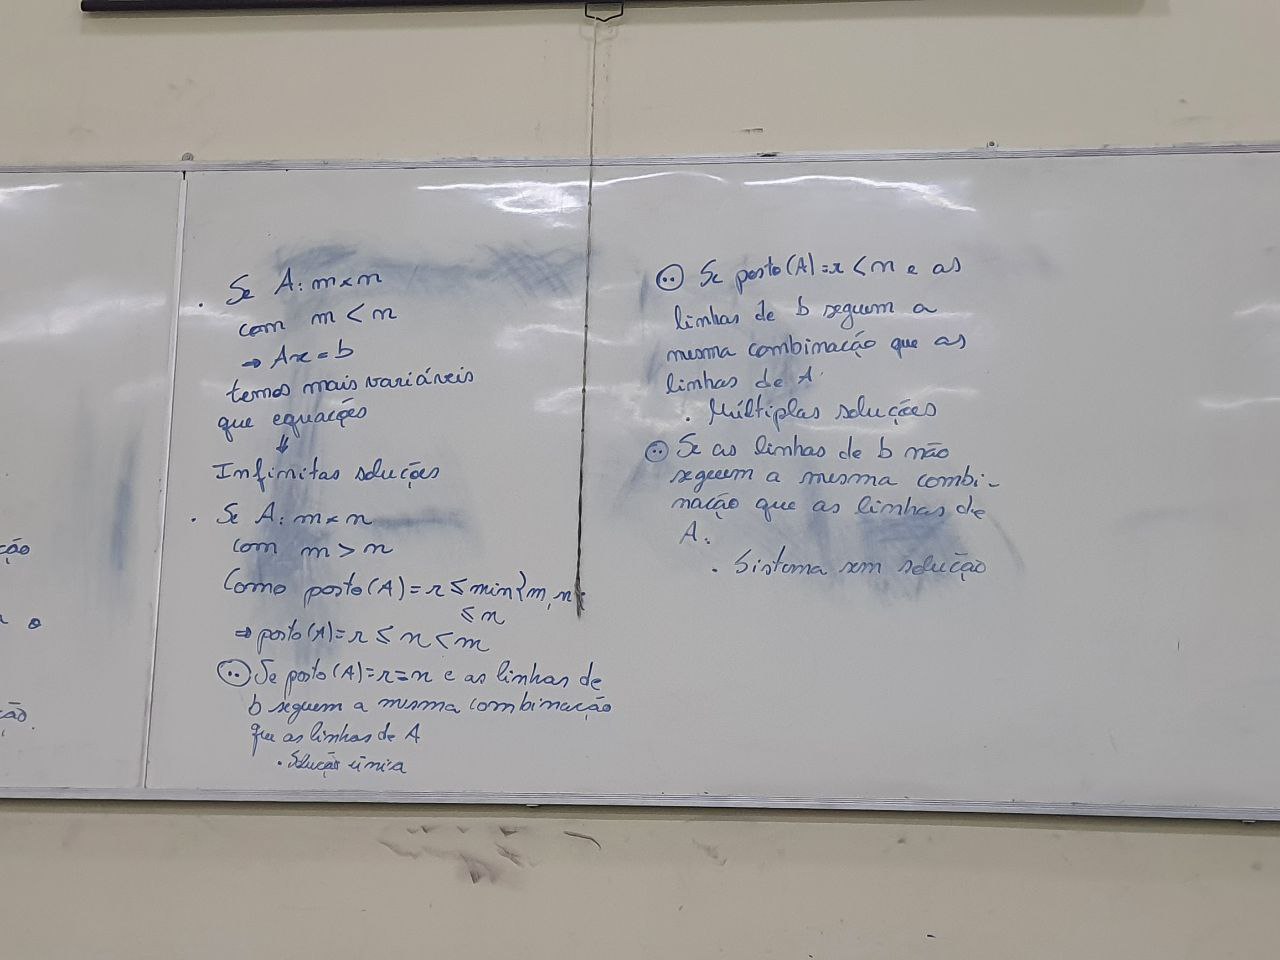 ção
a o
ção.
. Se A: m×n
com m < n
⇒ Ax = b
temos mais variáveis
que equações
⇓
Infinitas soluções
. Se A: m×n
com m > n
Como posto(A) = r ≤ min{m, n}
≤ n
⇒ posto(A) = r ≤ n < m
Se posto(A) = r = n e as linhas de
b seguem a mesma combinação
que as linhas de A
. Solução única
Se posto(A) = r < n e as
linhas de b seguem a
mesma combinação que as
linhas de A
. Múltiplas soluções
Se as linhas de b não
seguem a mesma combi-
nação que as linhas de
A.
. Sistema sem solução